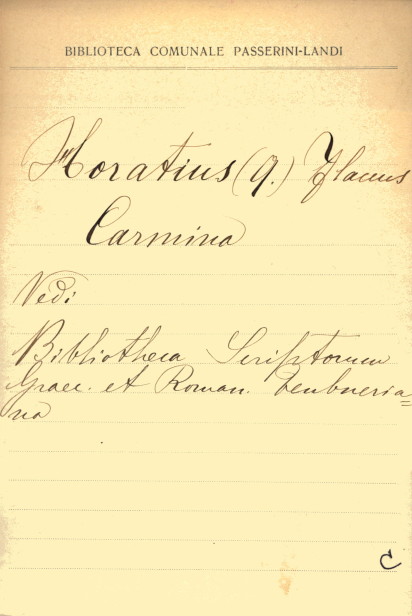 BIBLIOTECA COMUNALE PASSERINI-LANDI
Horatius (Q.) Flacus
Carmina
Vedi
Bibliotheca Scriptorum
Graec. et Roman. Teubneria=
na
C